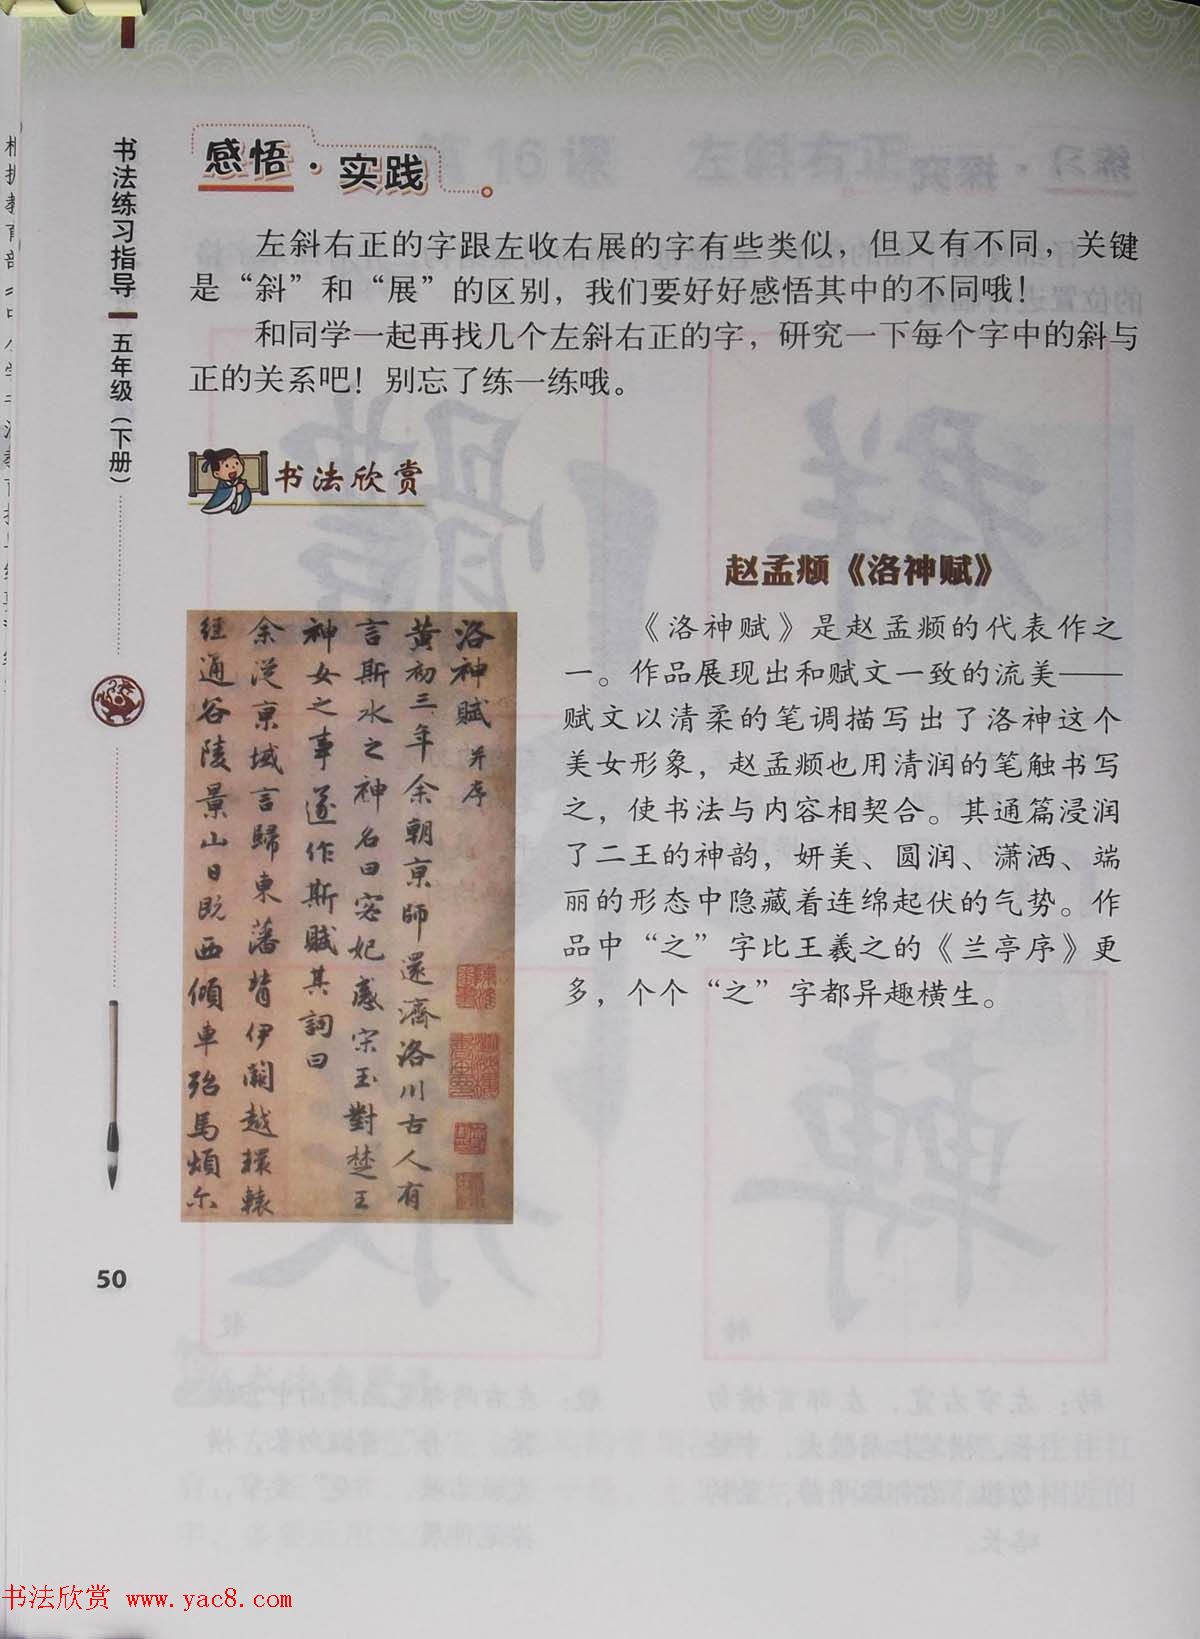 书法练习指导
五年级（下册）
感悟·实践
左斜右正的字跟左收右展的字有些类似，但又有不同，关键
是“斜”和“展”的区别，我们要好好感悟其中的不同哦！
和同学一起再找几个左斜右正的字，研究一下每个字中的斜与
正的关系吧！别忘了练一练哦。
书法欣赏
赵孟頫《洛神赋》
《洛神赋》是赵孟頫的代表作之
一。作品展现出和赋文一致的流美——
赋文以清柔的笔调描写出了洛神这个
美女形象，赵孟頫也用清润的笔触书写
之，使书法与内容相契合。其通篇浸润
了二王的神韵，妍美、圆润、潇洒、端
丽的形态中隐藏着连绵起伏的气势。作
品中“之”字比王羲之的《兰亭序》更
多，个个“之”字都异趣横生。
洛神赋 并序
黄初三年余朝京師還濟洛川古人有
言斯水之神名曰宓妃感宋玉對楚王
神女之事遂作斯賦其詞曰
余從京域言歸東藩背伊闕越轘轅
經通谷陵景山日既西傾車殆馬煩尔
50
书法欣赏 www.yac8.com